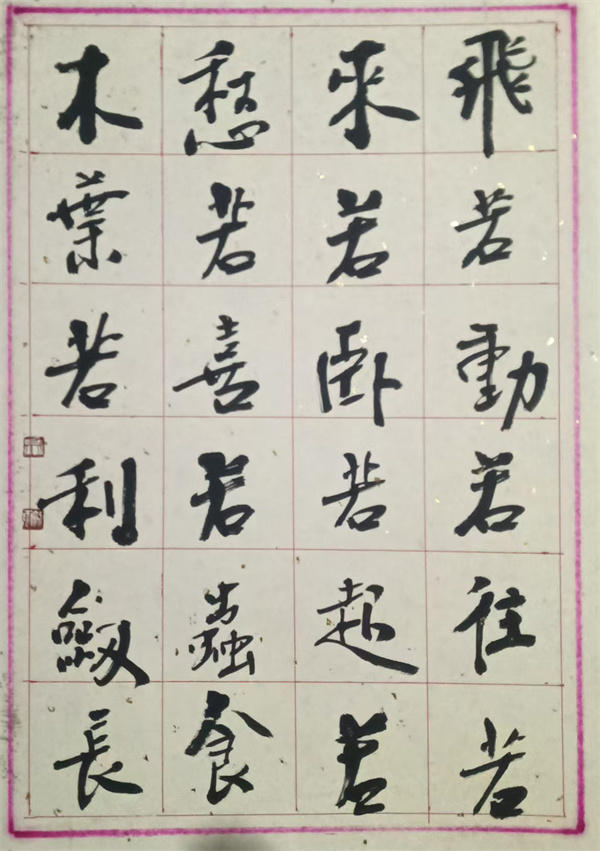 飛若動若往若
來若卧若起若
愁若喜若蟲食
木葉若利劔長